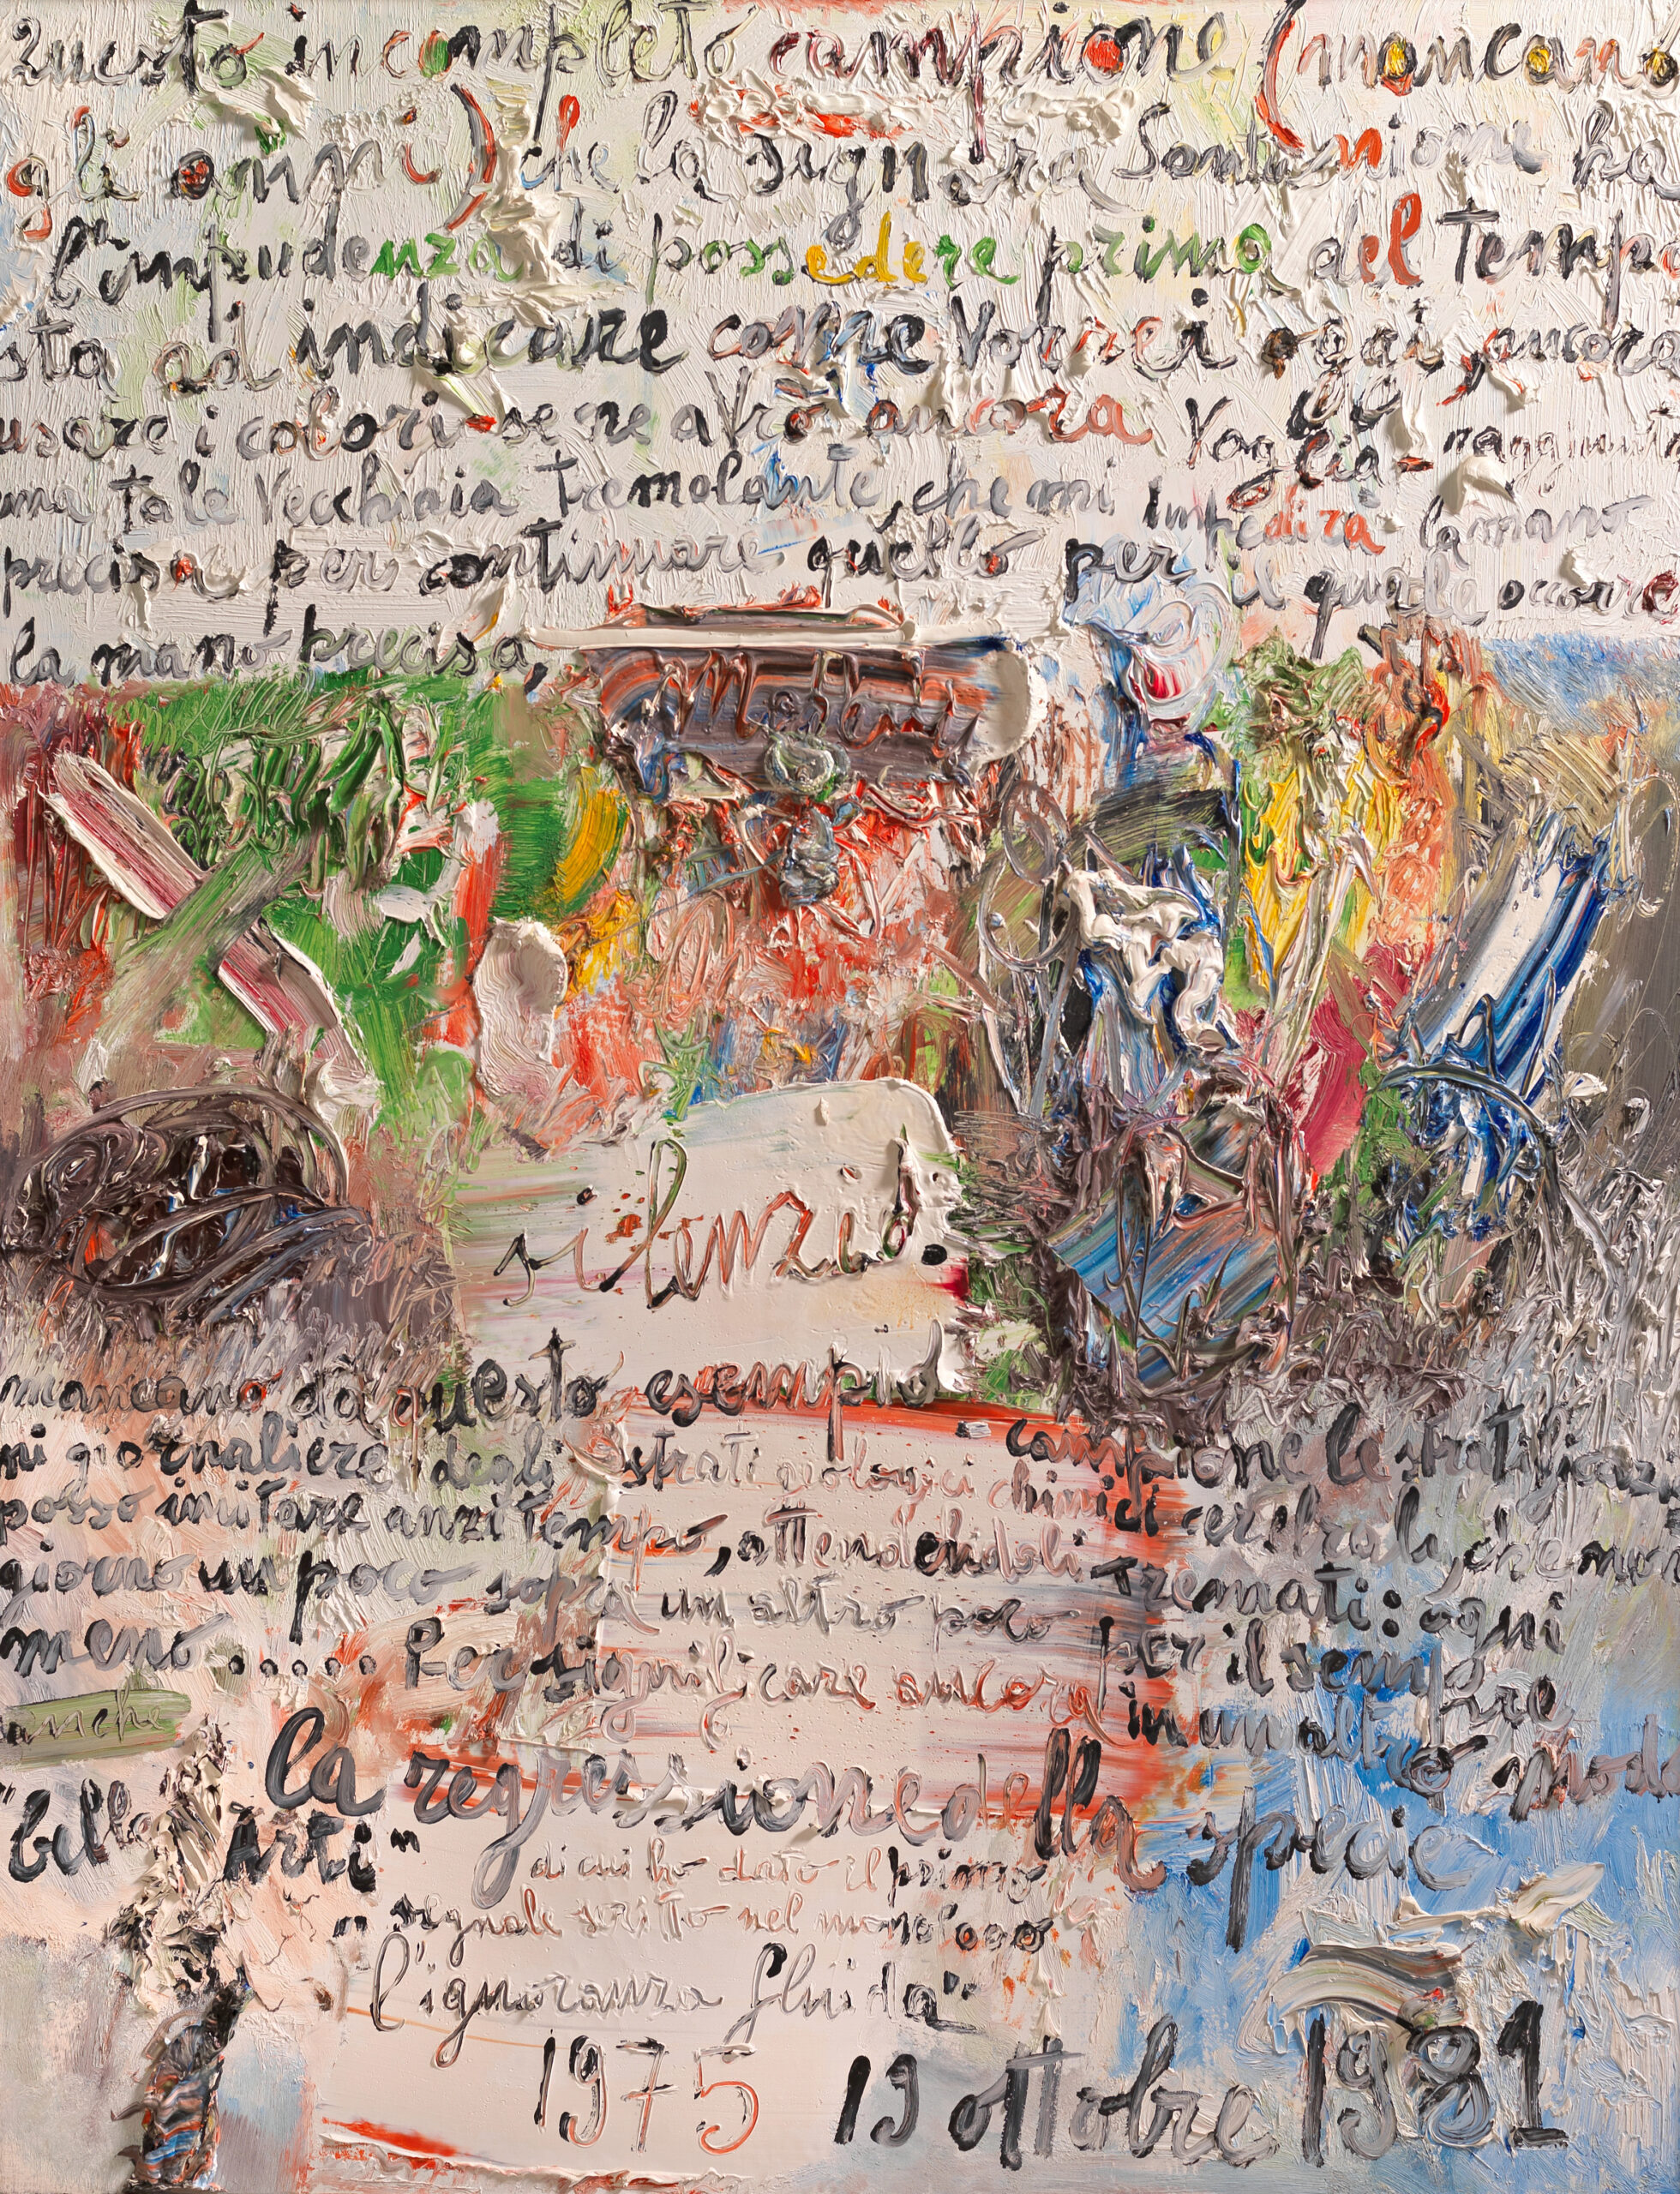 Questo incompleto campione (mancano
gli anni) che la signora Santamione ha
l'impudenza di possedere prima del tempo
sta ad indicare come vorrei oggi, ancora
usare i colori - se ne avrò ancora voglia - raggiunta
una tale vecchiaia tremolante, che mi impedirà la mano
precisa per continuare quello per il quale occorre
la mano precisa,
silenzio.
mancano da questo esempio
campione le stratificazio
ni giornaliere degli strati geologici chimici cerebrali, che non
posso imitare anzitempo, attendendoli tremati: ogni
giorno un poco sopra un altro poco per il sempre
meno..... Per significare ancora in un altro modo
anche
la regressione della specie
"belle Arti"
di cui ho dato il primo
segnale scritto nel monologo
"l'ignoranza fluida"
1975 19 ottobre 1981